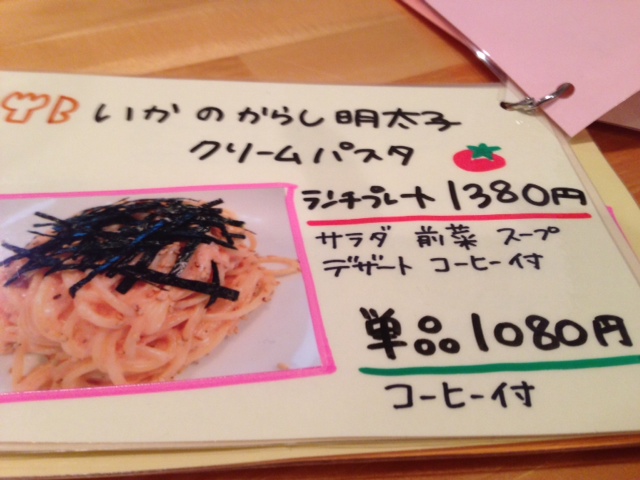 B いかのからし明太子
クリームパスタ
ランチプレート 1380円
サラダ 前菜 スープ
デザート コーヒー付
単品 1080円
コーヒー付